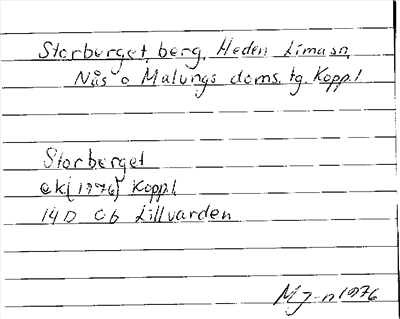 Storberget, berg, Heden Limasn,
Nås o Malungs doms. tg. Koppl
Storberget
ek(1976) Koppl.
14D Cb Lillvarden
MJ-n 1976